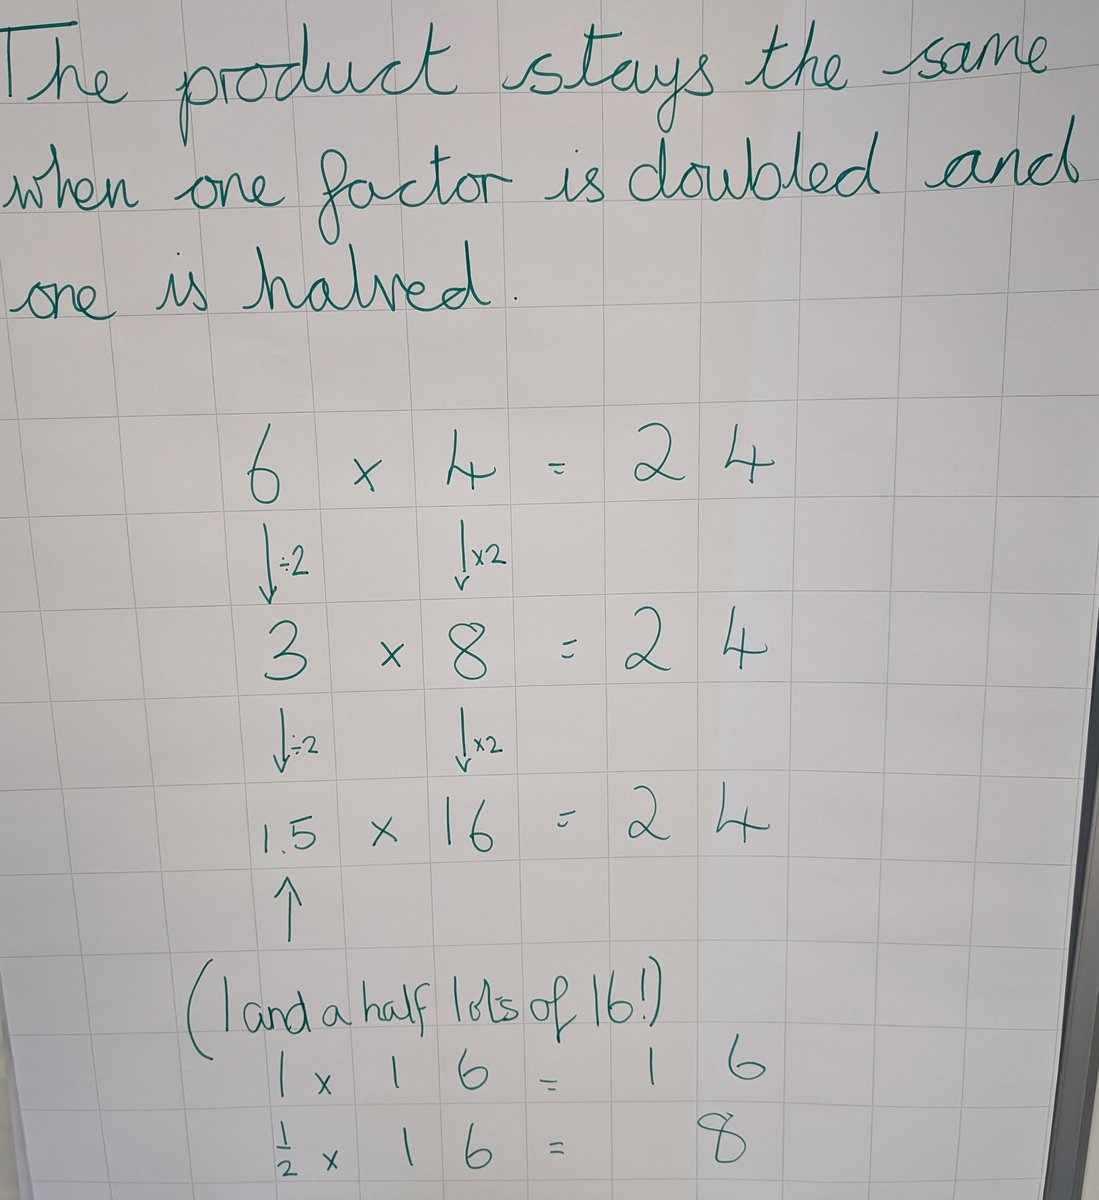 The product stays the same
when one factor is doubled and
one is halved.
6 × 4 = 24
↓÷2 ↓×2
3 × 8 = 24
↓÷2 ↓×2
1.5 × 16 = 24
↑
(1 and a half lots of 16!)
1 × 16 = 16
½ × 16 = 8